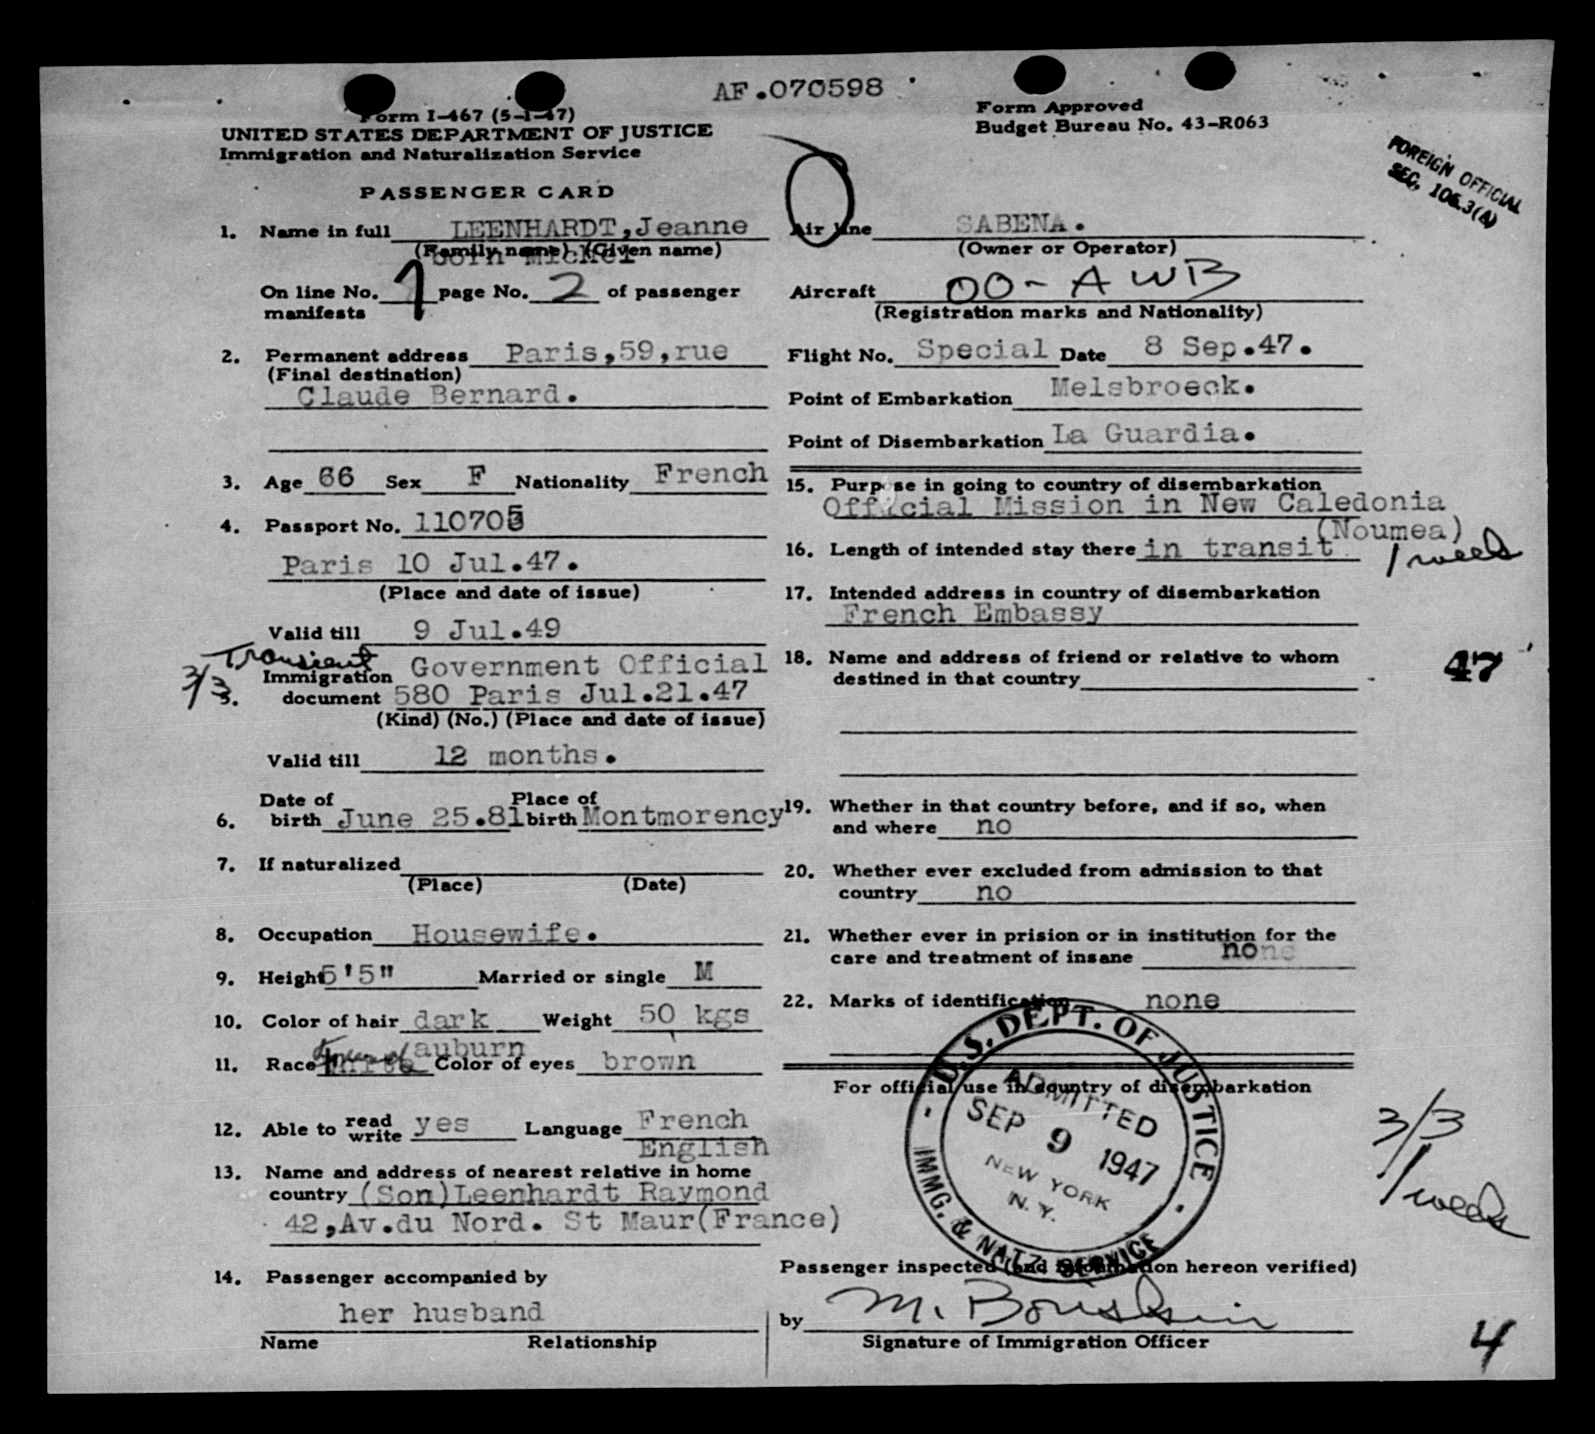 AF.070598
Form I-467 (5-1-47)
UNITED STATES DEPARTMENT OF JUSTICE
Immigration and Naturalization Service
Form Approved
Budget Bureau No. 43-R063
FOREIGN OFFICIAL
SEC. 105.3(4)
PASSENGER CARD
1. Name in full LEENHARDT,Jeanne
(Family name) (Given name)
born Michel
On line No. 1 page No. 2 of passenger
manifests
2. Permanent address Paris,59,rue
(Final destination)
Claude Bernard.
3. Age 66 Sex F Nationality French
4. Passport No. 110705
Paris 10 Jul.47.
(Place and date of issue)
Valid till 9 Jul.49
Transient
3/3
5. Immigration Government Official
document 580 Paris Jul.21.47
(Kind) (No.) (Place and date of issue)
Valid till 12 months.
6. Date of birth June 25.81 Place of birth Montmorency
7. If naturalized
(Place) (Date)
8. Occupation Housewife.
9. Height 5'5" Married or single M
10. Color of hair dark Weight 50 kgs
auburn
11. Race French Color of eyes brown
12. Able to read write yes Language French
English
13. Name and address of nearest relative in home
country (Son)Leenhardt Raymond
42,Av.du Nord. St Maur(France)
14. Passenger accompanied by
her husband
Name Relationship
Air line SABENA.
(Owner or Operator)
Aircraft OO-AWB
(Registration marks and Nationality)
Flight No. Special Date 8 Sep.47.
Point of Embarkation Melsbroeck.
Point of Disembarkation La Guardia.
15. Purpose in going to country of disembarkation
Official Mission in New Caledonia
(Noumea)
16. Length of intended stay there in transit 1 week
17. Intended address in country of disembarkation
French Embassy
18. Name and address of friend or relative to whom
destined in that country
47
19. Whether in that country before, and if so, when
and where no
20. Whether ever excluded from admission to that
country no
21. Whether ever in prision or in institution for the
care and treatment of insane none
22. Marks of identification none
For official use in country of disembarkation
U.S. DEPT. OF JUSTICE
ADMITTED
SEP 9 1947
NEW YORK
N.Y.
IMMG. & NATZ. SERVICE
3/3
1 week
Passenger inspected (and information hereon verified)
by M.
Signature of Immigration Officer
4